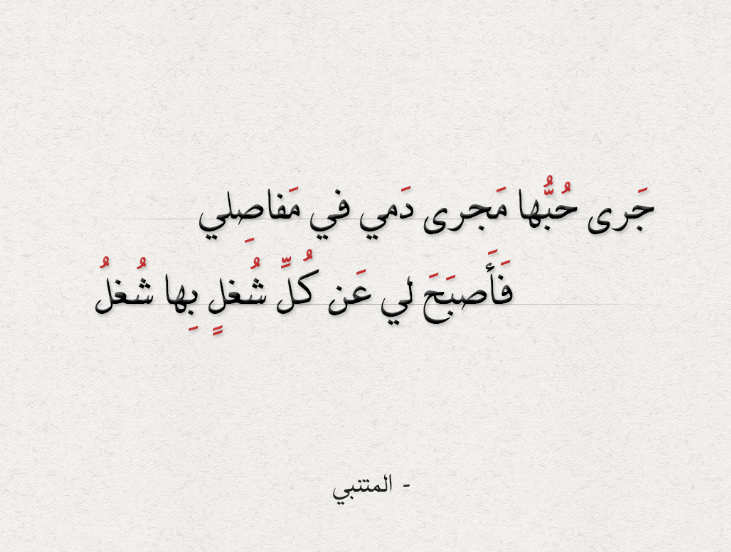 جَرى حُبُّها مَجرى دَمي في مَفاصِلي
فَأَصبَحَ لي عَن كُلِّ شُغلٍ بِها شُغلُ
- المتنبي